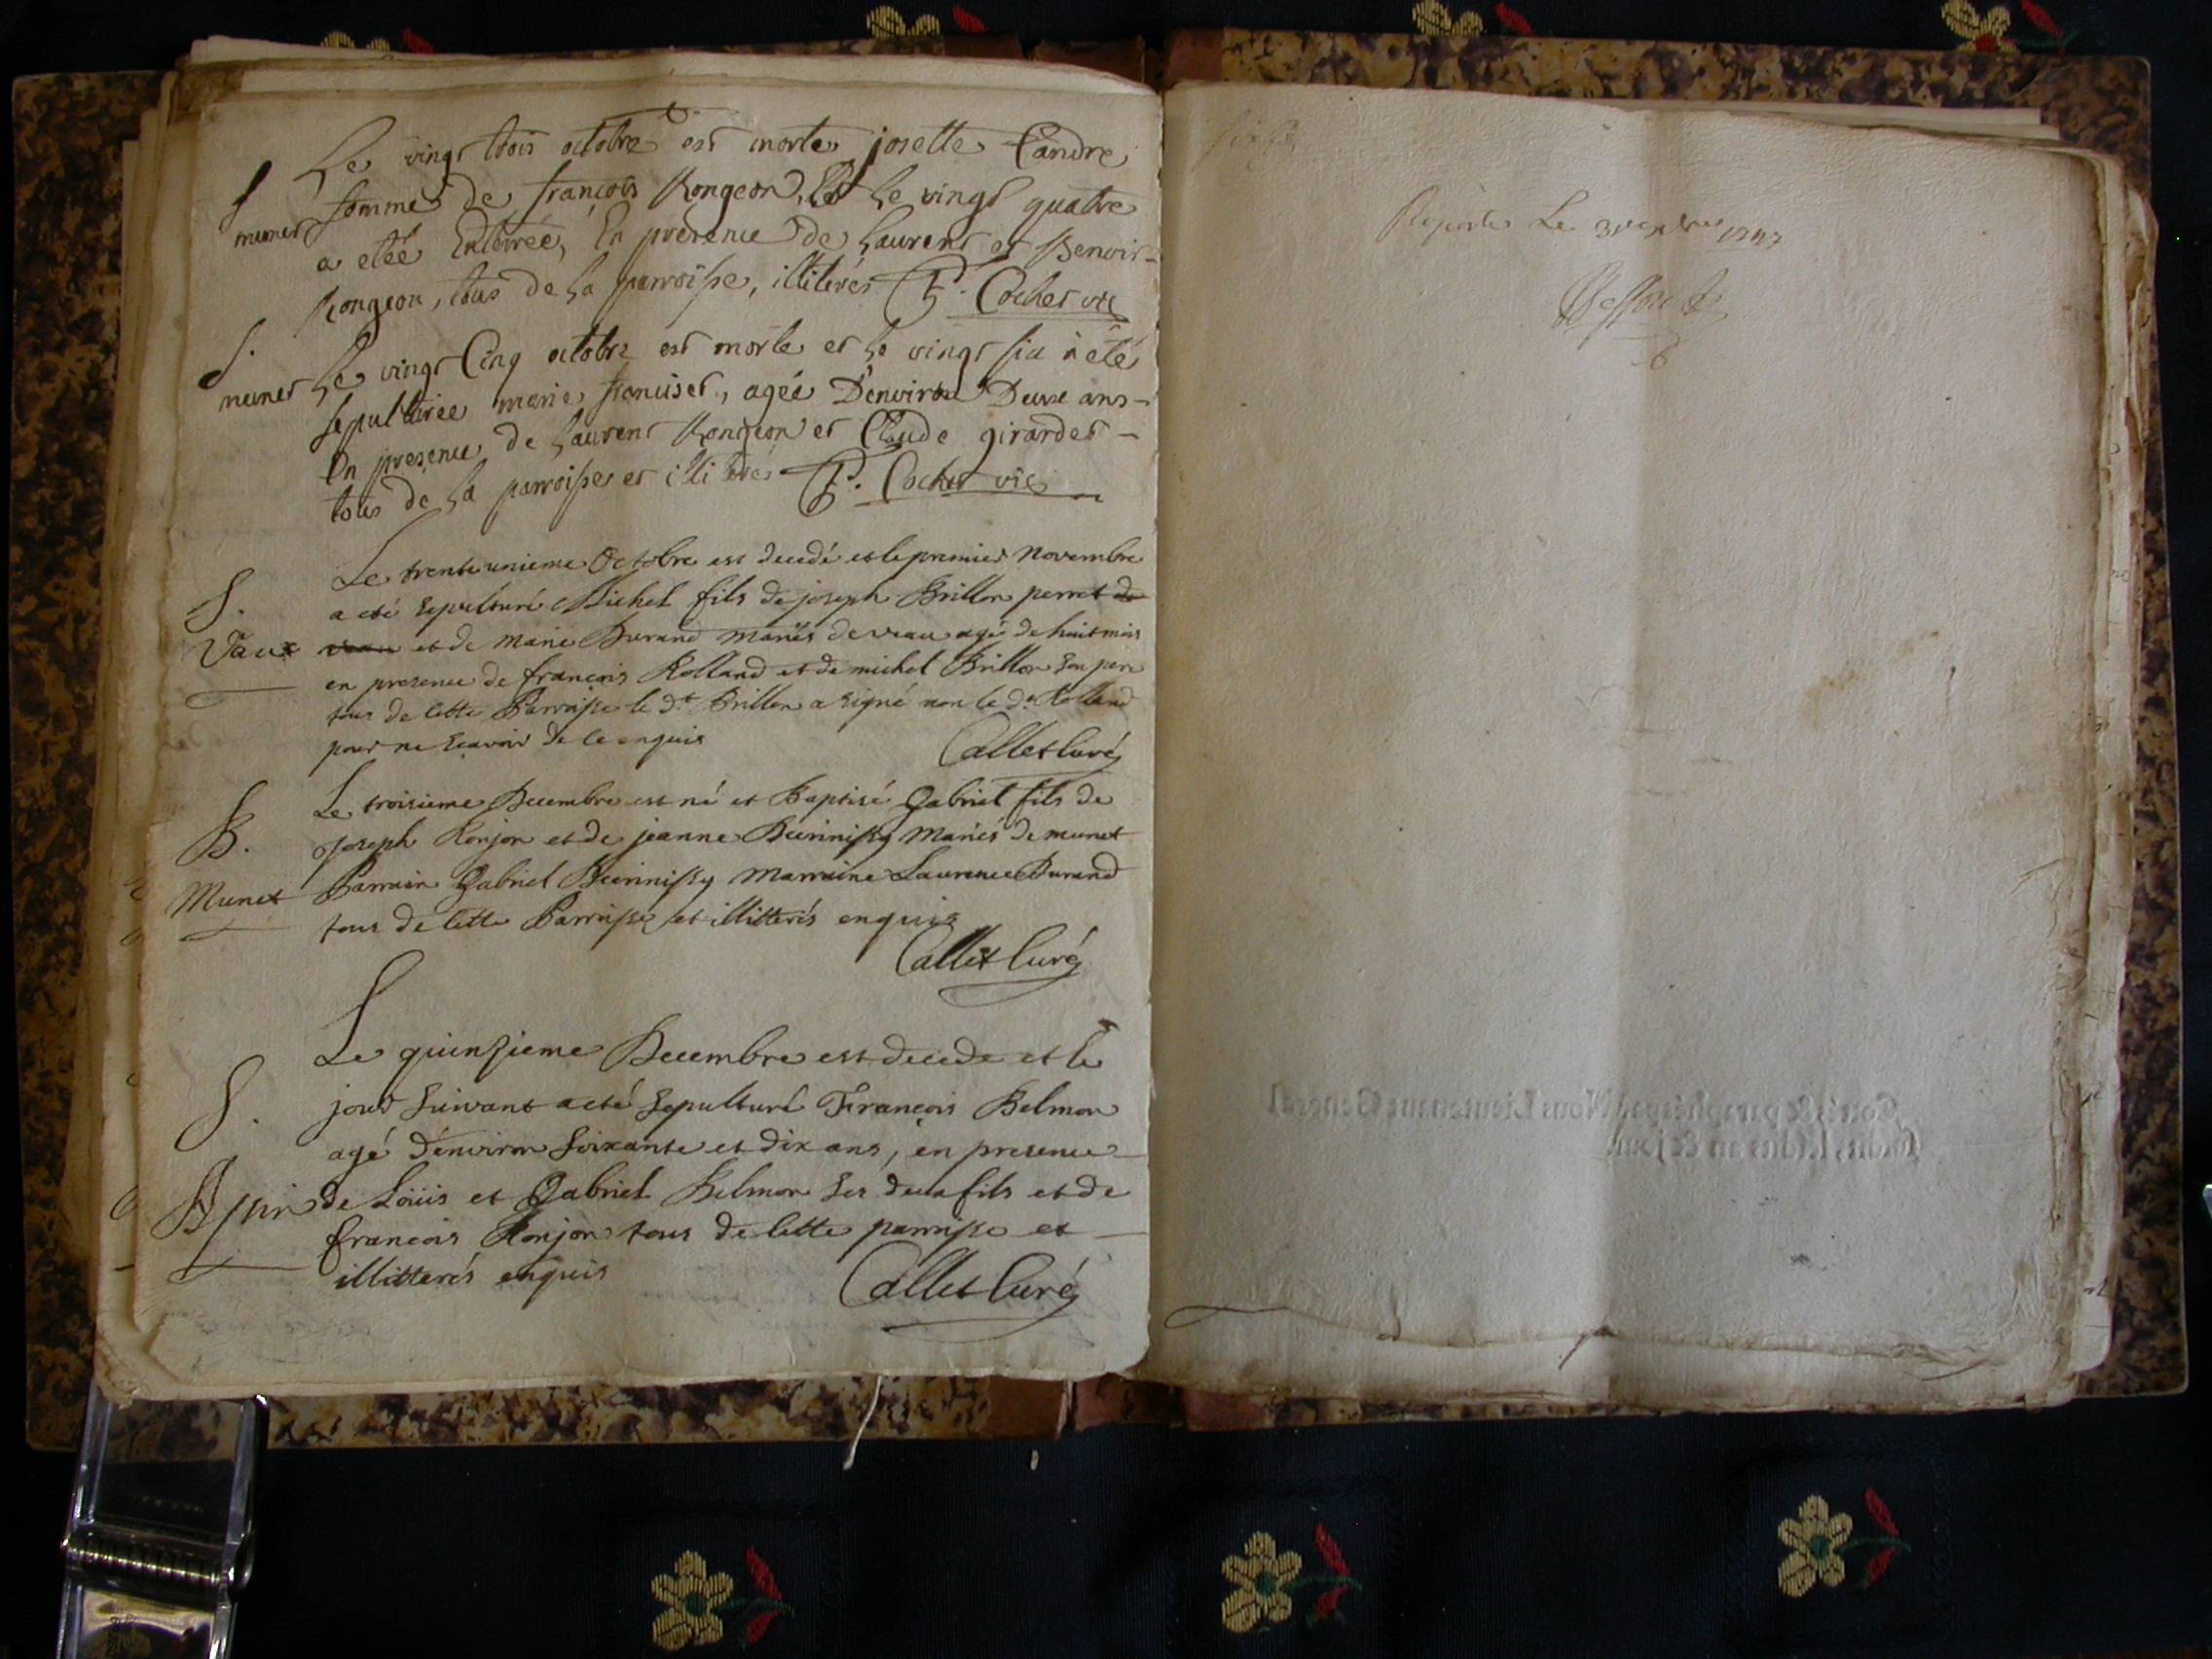 Le vingt trois octobre est morte josette Candre
S
femme de françois Rongeon, Et le vingt quatre
munet
a eteé Enterrée, En presence de Laurent et Benoit
Rongeon, tous de la parroisse, illiterés P. Cochet vic
S.
Le vingt Cinq octobre est morte et le vingt six à été
munet
sepulturée marie franciset, agée D'environ Deux ans
En presence de Laurent Rongeon et Claude girardet
tous de la parroisse et illiterés P. Cochet vic
Le trente unieme Octobre est decedé et le premier Novembre
S.
a eté sepulturé Michel fils de joseph Brillon perret de
Vaux
veau et de Marie Durand mariés de veau agé de huit mois
en presence de françois Rolland et de michel Brillon son pere
tous de cette Parroisse le dt Brillon a signé non le dt Rolland
pour ne sçavoir de ce enquis
Callet Curé
Le troisieme Decembre est né et Baptisé Gabriel fils de
B.
Joseph Ronjon et de jeanne mariés de munet
Munet
Parrain Gabriel Marraine Laurence Durand
tous de cette Parroisse et illitterés enquis
Callet Curé
Le quinzieme Decembre est decede et le
S.
jour suivant a eté sepulturé François Belmon
agé d'environ soixante et dix ans, en presence
de Loüis et Gabriel Belmon ses deux fils et de
françois Ronjon tous de cette parroisse et
illitterés enquis
Callet Curé
Le
Cottés & paraphés par Nous Lieutenant General
susdit, lesdits an & jour